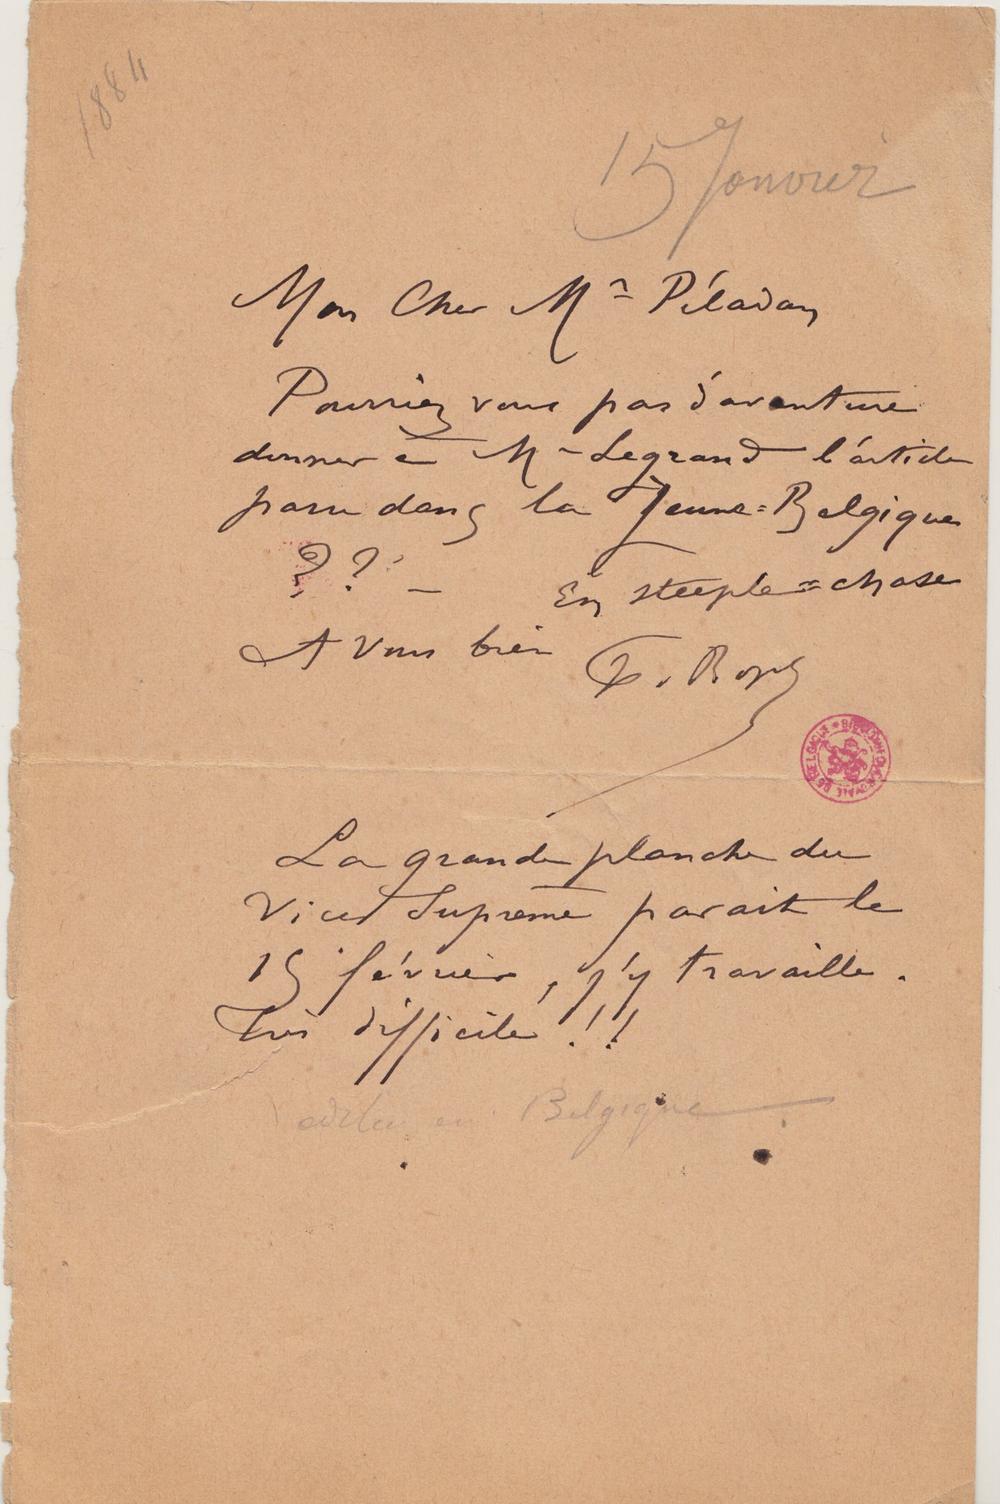 1884
15 Janvier
Mon Cher Mr Péladan
Pourriez vous pas d'aventure
donner à Mr Legrand l'article
paru dans la Jeune=Belgique
?? — En steeple=chase
A vous bien F. Rops
BIBLIOTHÈQUE ROYALE DE BELGIQUE
La grande planche du
Vice Suprême parait le
15 février, j'y travaille.
Très difficile !!
en Belgique